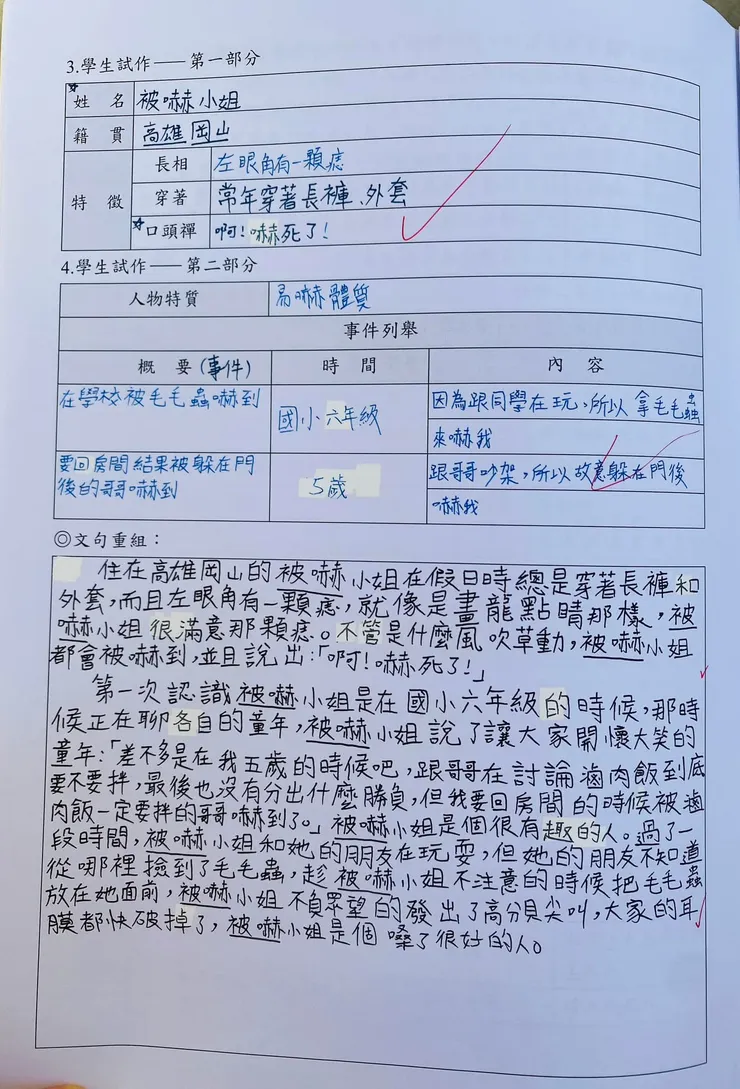 3.學生試作——第一部分
☆
姓 名 被嚇小姐
籍 貫 高雄岡山
特 徵 長相 左眼角有一顆痣
穿著 常年穿著長褲、外套
☆口頭禪 啊！嚇死了！
4.學生試作——第二部分
人物特質 易嚇體質
事件列舉
概 要(事件) 時 間 內 容
在學校被毛毛蟲嚇到 國小六年級 因為跟同學在玩，所以拿毛毛蟲
來嚇我
要回房間結果被躲在門
後的哥哥嚇到 5歲 跟哥哥吵架，所以故意躲在門後
嚇我
◎文句重組：
住在高雄岡山的被嚇小姐在假日時總是穿著長褲和
外套，而且左眼角有一顆痣，就像是畫龍點睛那樣，被
嚇小姐很滿意那顆痣。不管是什麼風吹草動，被嚇小姐
都會被嚇到，並且說出：「啊！嚇死了！」
第一次認識被嚇小姐是在國小六年級的時候，那時
候正在聊各自的童年，被嚇小姐說了讓大家開懷大笑的
童年：「差不多是在我五歲的時候吧，跟哥哥在討論滷肉飯到底
要不要拌，最後也沒有分出什麼勝負，但我要回房間的時候被滷
肉飯一定要拌的哥哥嚇到了。」被嚇小姐是個很有趣的人。過了一
段時間，被嚇小姐和她的朋友在玩耍，但她的朋友不知道
從哪裡撿到了毛毛蟲，趁被嚇小姐不注意的時候把毛毛蟲
放在她面前，被嚇小姐不負眾望的發出了高分貝尖叫，大家的耳
膜都快破掉了，被嚇小姐是個嗓了很好的人。